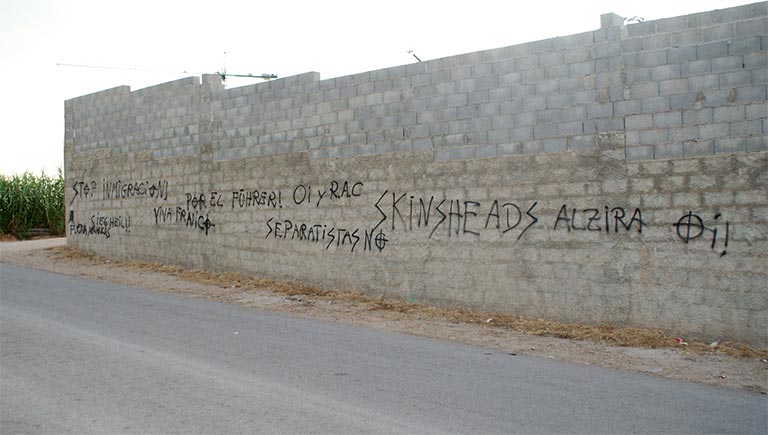 STOP INMIGRACION!
SIEGHEIL!!
FUERA
VIVA FRANCO
POR EL FÜHRER! Oi y RAC
SEPARATISTAS NO
SKINSHEADS ALZIRA Oi!!